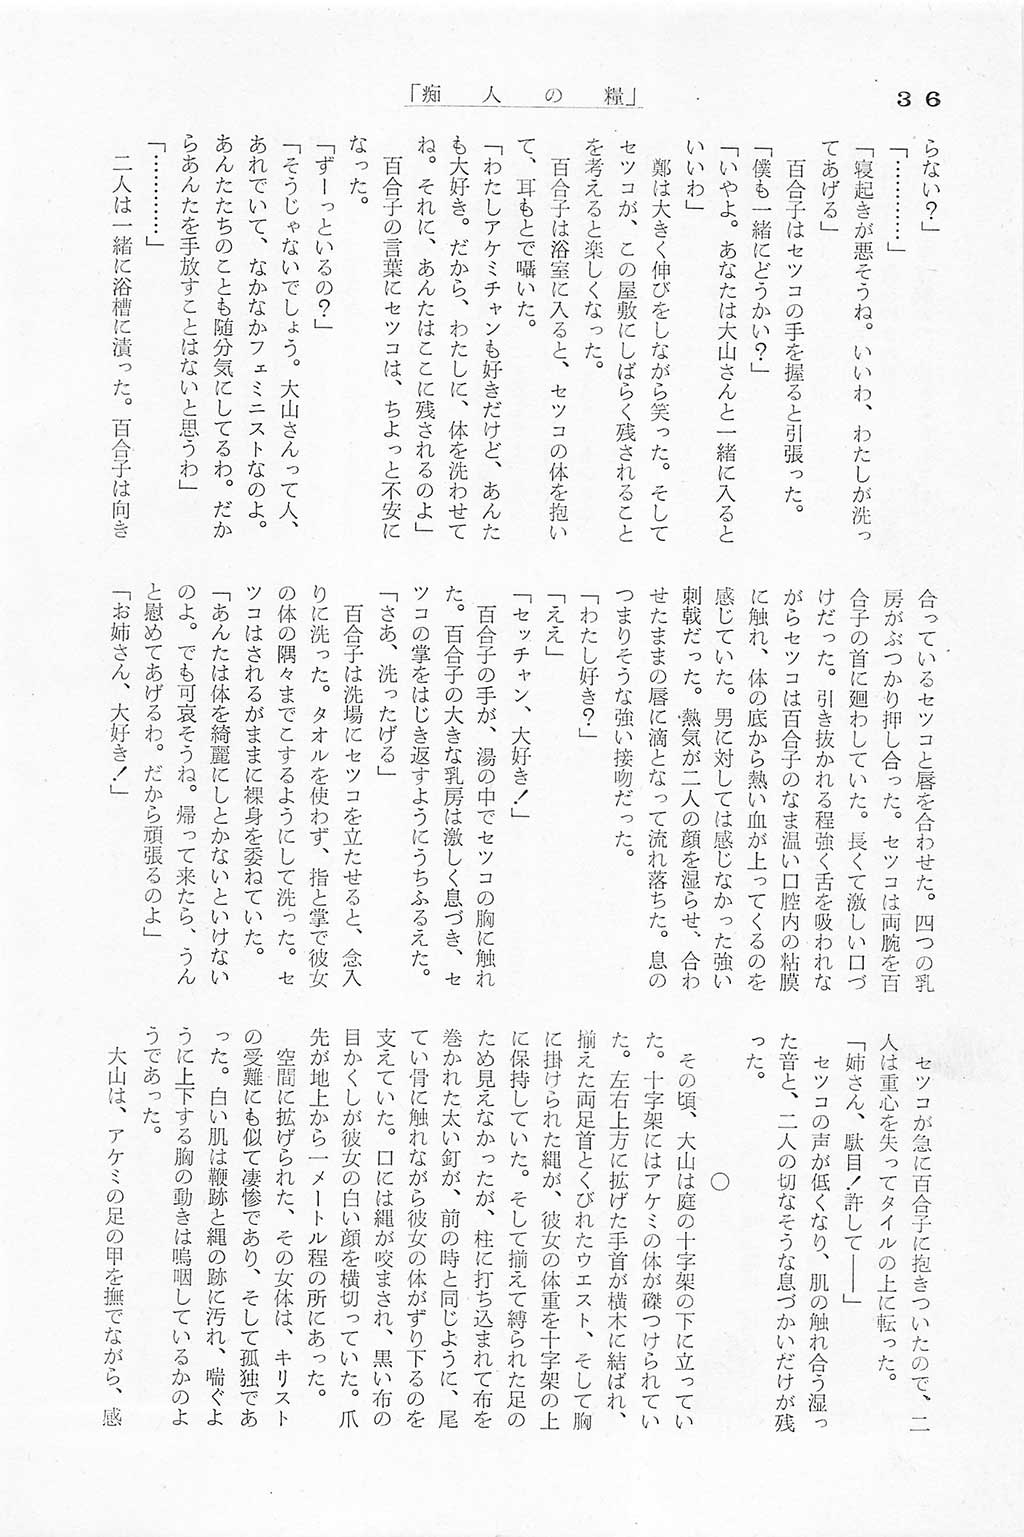 36
「痴人の糧」
らない？」
「…………」
「寝起きが悪そうね。いいわ、わたしが洗っ
てあげる」
百合子はセツコの手を握ると引張った。
「僕も一緒にどうかい？」
「いやよ。あなたは大山さんと一緒に入ると
いいわ」
鄭は大きく伸びをしながら笑った。そして
セツコが、この屋敷にしばらく残されること
を考えると楽しくなった。
百合子は浴室に入ると、セツコの体を抱い
て、耳もとで囁いた。
「わたしアケミチャンも好きだけど、あんた
も大好き。だから、わたしに、体を洗わせて
ね。それに、あんたはここに残されるのよ」
百合子の言葉にセツコは、ちよっと不安に
なった。
「ずーっといるの？」
「そうじゃないでしょう。大山さんって人、
あれでいて、なかなかフェミニストなのよ。
あんたたちのことも随分気にしてるわ。だか
らあんたを手放すことはないと思うわ」
「…………」
二人は一緒に浴槽に漬った。百合子は向き
合っているセツコと唇を合わせた。四つの乳
房がぶつかり押し合った。セツコは両腕を百
合子の首に廻わしていた。長くて激しい口づ
けだった。引き抜かれる程強く舌を吸われな
がらセツコは百合子のなま温い口腔内の粘膜
に触れ、体の底から熱い血が上ってくるのを
感じていた。男に対しては感じなかった強い
刺戟だった。熱気が二人の顔を湿らせ、合わ
せたままの唇に滴となって流れ落ちた。息の
つまりそうな強い接吻だった。
「わたし好き？」
「ええ」
「セッチャン、大好き！」
百合子の手が、湯の中でセツコの胸に触れ
た。百合子の大きな乳房は激しく息づき、セ
ツコの掌をはじき返すようにうちふるえた。
「さあ、洗ったげる」
百合子は洗場にセツコを立たせると、念入
りに洗った。タオルを使わず、指と掌で彼女
の体の隅々までこするようにして洗った。セ
ツコはされるがままに裸身を委ねていた。
「あんたは体を綺麗にしとかないといけない
のよ。でも可哀そうね。帰って来たら、うん
と慰めてあげるわ。だから頑張るのよ」
「お姉さん、大好き！」
セツコが急に百合子に抱きついたので、二
人は重心を失ってタイルの上に転った。
「姉さん、駄目！許して――」
セツコの声が低くなり、肌の触れ合う湿っ
た音と、二人の切なそうな息づかいだけが残
った。
○
その頃、大山は庭の十字架の下に立ってい
た。十字架にはアケミの体が磔つけられてい
た。左右上方に拡げた手首が横木に結ばれ、
揃えた両足首とくびれたウエスト、そして胸
に掛けられた縄が、彼女の体重を十字架の上
に保持していた。そして揃えて縛られた足の
ため見えなかったが、柱に打ち込まれて布を
巻かれた太い釘が、前の時と同じように、尾
てい骨に触れながら彼女の体がずり下るのを
支えていた。口には縄が咬まされ、黒い布の
目かくしが彼女の白い顔を横切っていた。爪
先が地上から一メートル程の所にあった。
空間に拡げられた、その女体は、キリスト
の受難にも似て凄惨であり、そして孤独であ
った。白い肌は鞭跡と縄の跡に汚れ、喘ぐよ
うに上下する胸の動きは嗚咽しているかのよ
うであった。
大山は、アケミの足の甲を撫でながら、感